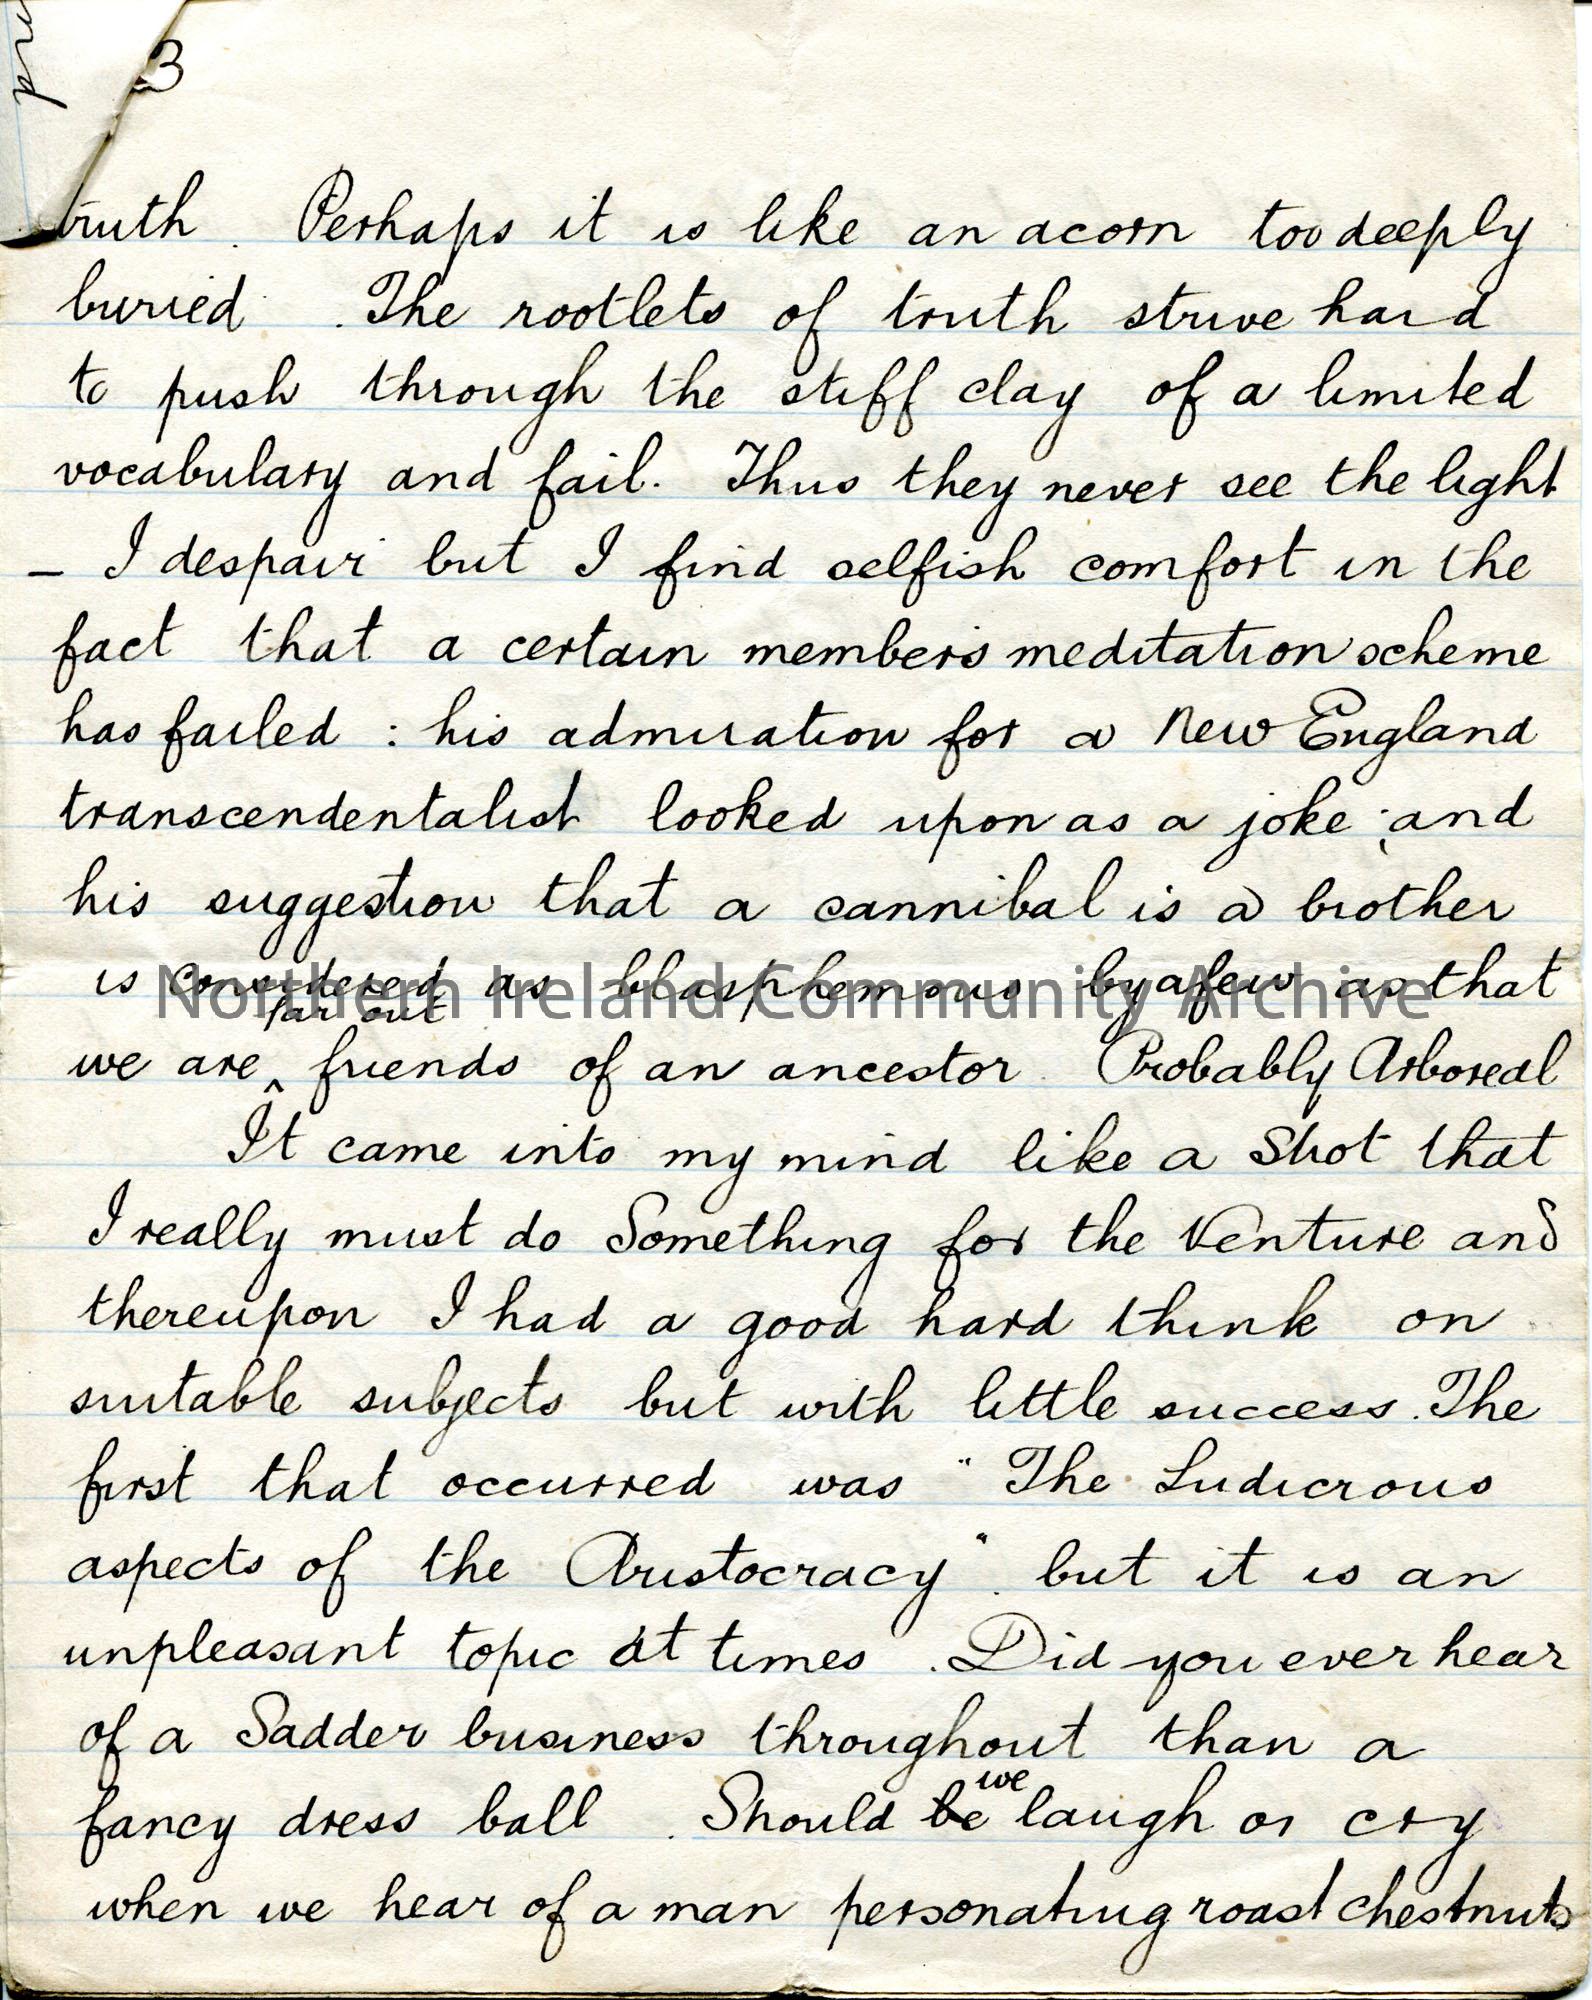 3
truth. Perhaps it is like an acorn too deeply
buried. The rootlets of truth strive hard
to push through the stiff clay of a limited
vocabulary and fail. Thus they never see the light
– I despair but I find selfish comfort in the
fact that a certain members meditation scheme
has failed : his admiration for a New England
transcendentalist looked upon as a joke ; and
his suggestion that a cannibal is a brother
is considered as blasphemous by a few as that
Northern Ireland Community Archive
far out
we are ^ friends of an ancestor Probably Arboreal
It came into my mind like a Shot that
I really must do Something for the Venture and
thereupon I had a good hard think on
suitable subjects but with little success. The
first that occurred was "The Ludicrous
aspects of the Aristocracy". but it is an
unpleasant topic at times. Did you ever hear
of a Sadder business throughout than a
we
fancy dress ball. Should be laugh or cry
when we hear of a man personating roast chestnuts